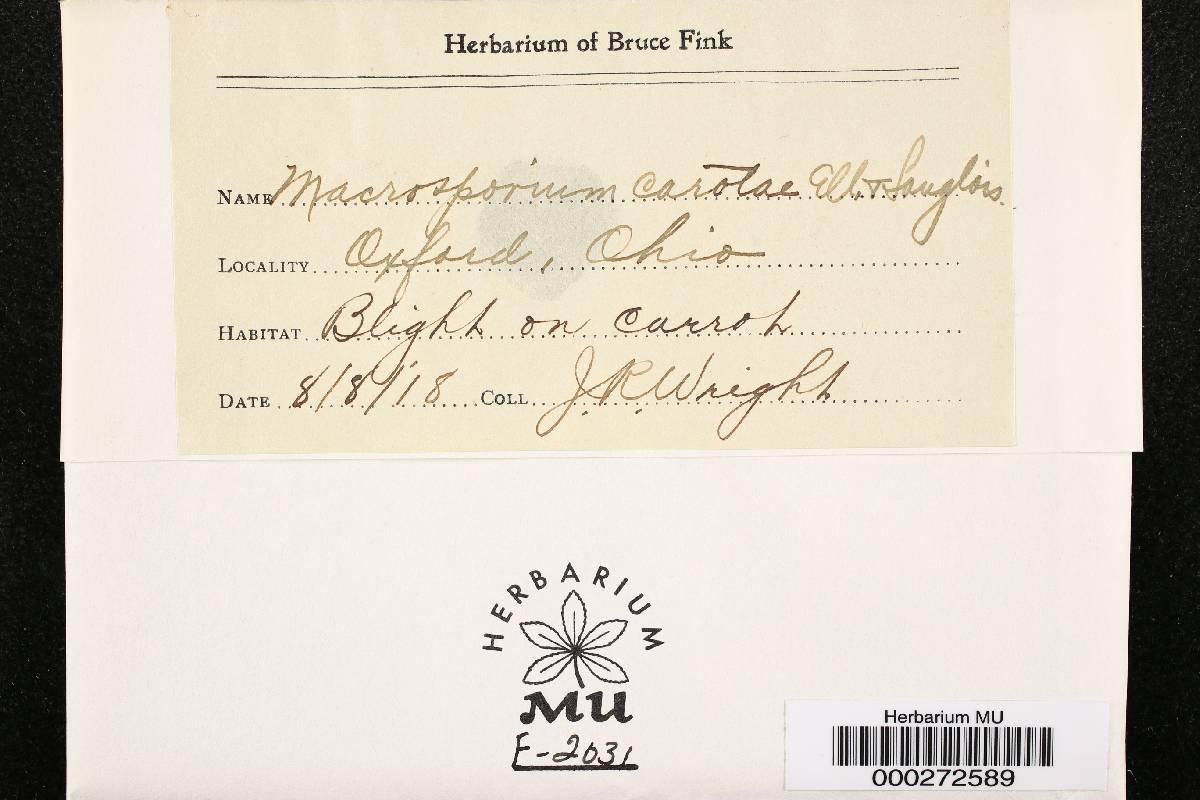 Herbarium of Bruce Fink
NAME Macrosporium carotae Ell. & Langlois.
LOCALITY Oxford, Ohio
HABITAT Blight on carrot
DATE 8/8/18 COLL J.R. Wright
HERBARIUM
MU
F-2031
Herbarium MU
000272589